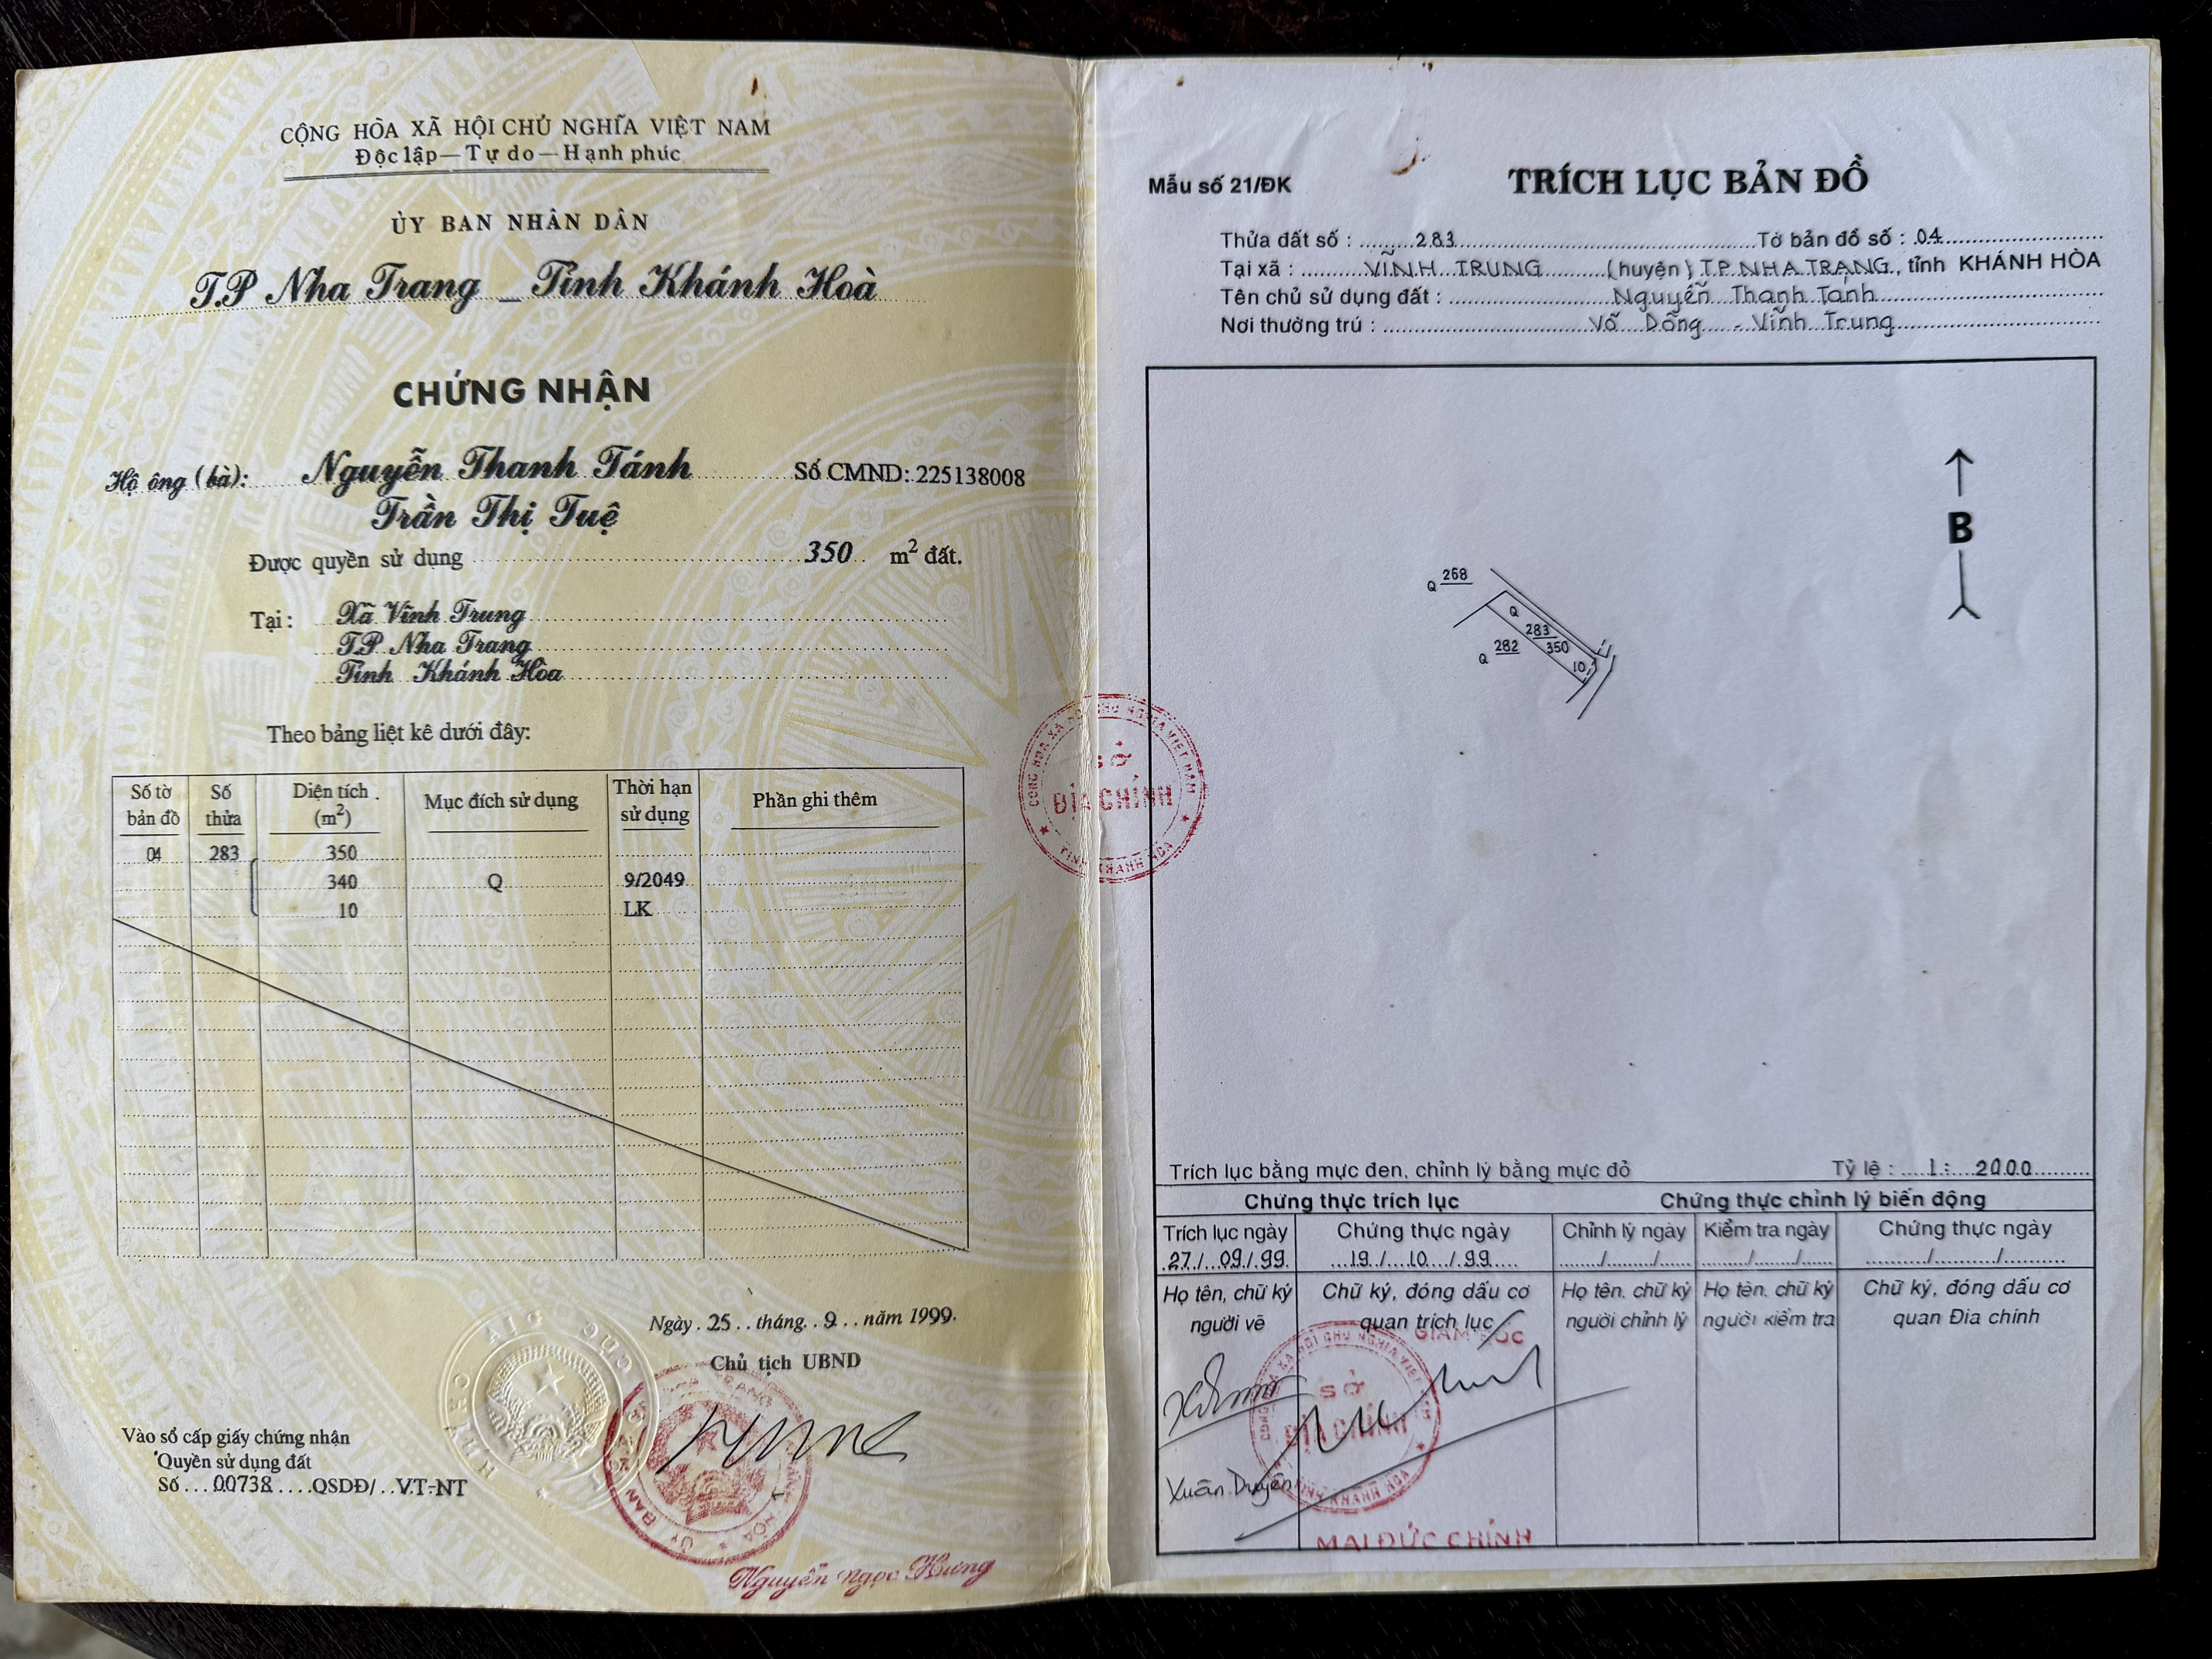 CỘNG HÒA XÃ HỘI CHỦ NGHĨA VIỆT NAM
Độc lập — Tự do — Hạnh phúc
ỦY BAN NHÂN DÂN
T.P Nha Trang _ Tỉnh Khánh Hoà
CHỨNG NHẬN
Hộ ông (bà): Nguyễn Thanh Tánh Số CMND: 225138008
Trần Thị Tuệ
Được quyền sử dụng 350 m² đất.
Tại : Xã Vĩnh Trung
T.P Nha Trang
Tỉnh Khánh Hòa
Theo bảng liệt kê dưới đây:
Số tờ bản đồ Số thửa Diện tích (m²) Mục đích sử dụng Thời hạn sử dụng Phần ghi thêm
04 283 350
340 Q 9/2049
10 LK
Ngày 25 tháng 9 năm 1999.
Chủ tịch UBND
Vào sổ cấp giấy chứng nhận
Quyền sử dụng đất
Số 00738 QSDĐ/ VT-NT
Nguyễn Ngọc Hưng
CỘNG HÒA XÃ HỘI CHỦ NGHĨA VIỆT NAM
SỞ
ĐỊA CHÍNH
TỈNH KHÁNH HÒA
Mẫu số 21/ĐK
TRÍCH LỤC BẢN ĐỒ
Thửa đất số : 283 Tờ bản đồ số : 04
Tại xã : VĨNH TRUNG (huyện) T.P NHA TRANG, tỉnh KHÁNH HÒA
Tên chủ sử dụng đất : Nguyễn Thanh Tánh
Nơi thường trú : Võ Dõng - Vĩnh Trung
B
Q 268
Q
283
350
10
Q 282
Trích lục bằng mực đen, chỉnh lý bằng mực đỏ Tỷ lệ : 1 : 2000
Chứng thực trích lục Chứng thực chỉnh lý biến động
Trích lục ngày Chứng thực ngày Chỉnh lý ngày Kiểm tra ngày Chứng thực ngày
27/ 09/ 99 19 / 10 / 99 / / / / / /
Họ tên, chữ ký Chữ ký, đóng dấu cơ Họ tên, chữ ký Họ tên, chữ ký Chữ ký, đóng dấu cơ
người vẽ quan trích lục người chỉnh lý người kiểm tra quan Địa chính
GIÁM ĐỐC
SỞ
ĐỊA CHÍNH
TỈNH KHÁNH HÒA
Xuân Duyên
MAI ĐỨC CHÍNH